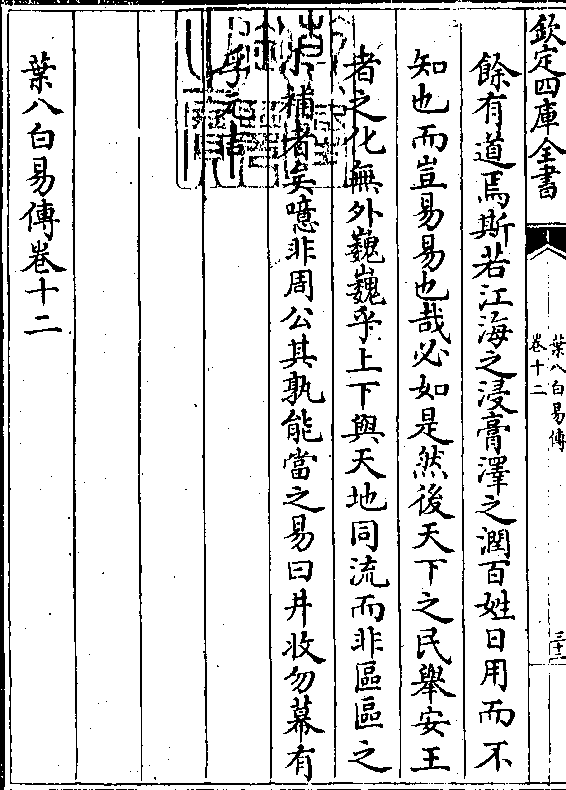 欽定四庫全書
葉八白易傳
卷十二
三十二
餘有道焉斯若江海之浸膏澤之潤百姓日用而不
知也而豈易易也哉必如是然後天下之民舉安王
者之化無外巍巍乎上下與天地同流而非區區之
小補者矣噫非周公其孰能當之易曰井收勿幕有
孚元吉
葉八白易傳卷十二